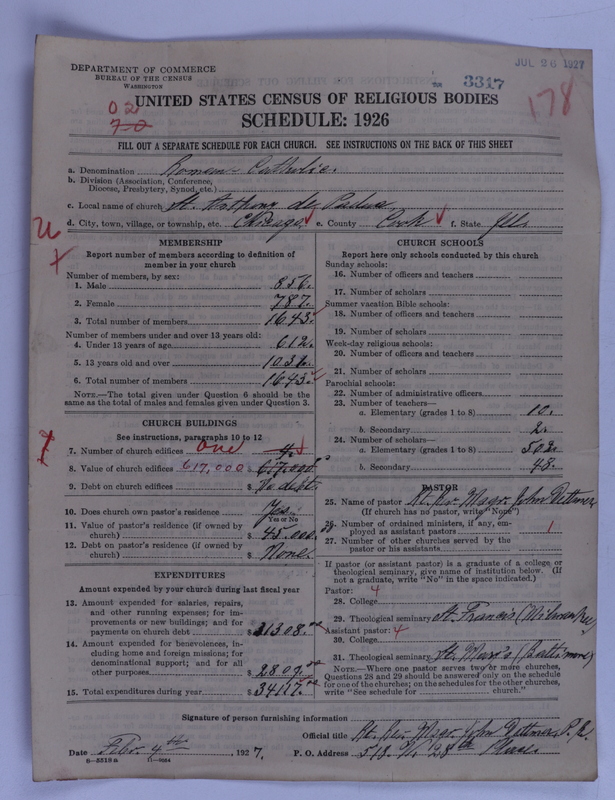 JUL 26 1927
DEPARTMENT OF COMMERCE
BUREAU OF THE CENSUS
WASHINGTON
3317
178
02
70
UNITED STATES CENSUS OF RELIGIOUS BODIES
SCHEDULE: 1926
FILL OUT A SEPARATE SCHEDULE FOR EACH CHURCH. SEE INSTRUCTIONS ON THE BACK OF THIS SHEET
a. Denomination Roman Catholic
b. Division (Association, Conference, Diocese, Presbytery, Synod, etc.)
c. Local name of church St. Anthony de Padua
d. City, town, village, or township, etc. Chicago. e. County Cook f. State Ill.
MEMBERSHIP
Report number of members according to definition of
member in your church
Number of members, by sex:
1. Male 856.
2. Female 787.
3. Total number of members 1643.
Number of members under and over 13 years old:
4. Under 13 years of age 612.
5. 13 years old and over 1031.
6. Total number of members 1643.
NOTE.—The total given under Question 6 should be the
same as the total of males and females given under Question 3.
CHURCH BUILDINGS
See instructions, paragraphs 10 to 12
7. Number of church edifices one 4.
8. Value of church edifices 617,000 $ 617,000.
9. Debt on church edifices $ No debt.
10. Does church own pastor's residence? Yes.
Yes or No
11. Value of pastor's residence (if owned by
church) $ 45.000.
12. Debt on pastor's residence (if owned by
church) $ None.
EXPENDITURES
Amount expended by your church during last fiscal year
13. Amount expended for salaries, repairs,
and other running expenses; for im-
provements or new buildings; and for
payments on church debt $ 31308.00
14. Amount expended for benevolences, in-
cluding home and foreign missions; for
denominational support; and for all
other purposes $ 2809.00
15. Total expenditures during year $ 34117.00
CHURCH SCHOOLS
Report here only schools conducted by this church
Sunday schools:
16. Number of officers and teachers
17. Number of scholars
Summer vacation Bible schools:
18. Number of officers and teachers
19. Number of scholars
Week-day religious schools:
20. Number of officers and teachers
21. Number of scholars
Parochial schools:
22. Number of administrative officers
23. Number of teachers—
a. Elementary (grades 1 to 8) 10.
b. Secondary 2.
24. Number of scholars—
a. Elementary (grades 1 to 8) 502.
b. Secondary 48.
PASTOR
25. Name of pastor Rt. Rev. Msgr. John Dettmer
(If church has no pastor, write "None")
26. Number of ordained ministers, if any, em-
ployed as assistant pastors 1
27. Number of other churches served by the
pastor or his assistants
If pastor (or assistant pastor) is a graduate of a college or
theological seminary, give name of institution below. (If
not a graduate, write "No" in the space indicated.)
Pastor: 4
28. College
29. Theological seminary St. Francis (Milwaukee)
Assistant pastor: 4
30. College
31. Theological seminary St. Mary's (Baltimore)
NOTE.—Where one pastor serves two or more churches,
Questions 28 and 29 should be answered only on the schedule
for one of the churches; on the schedules for the other churches,
write "See schedule for church."
Signature of person furnishing information
Official title Rt. Rev. Msgr. John Dettmer, P. R.
Date Feb. 4th, 1927. P. O. Address 518. W. 28th Place.
8—5518a 11—9054